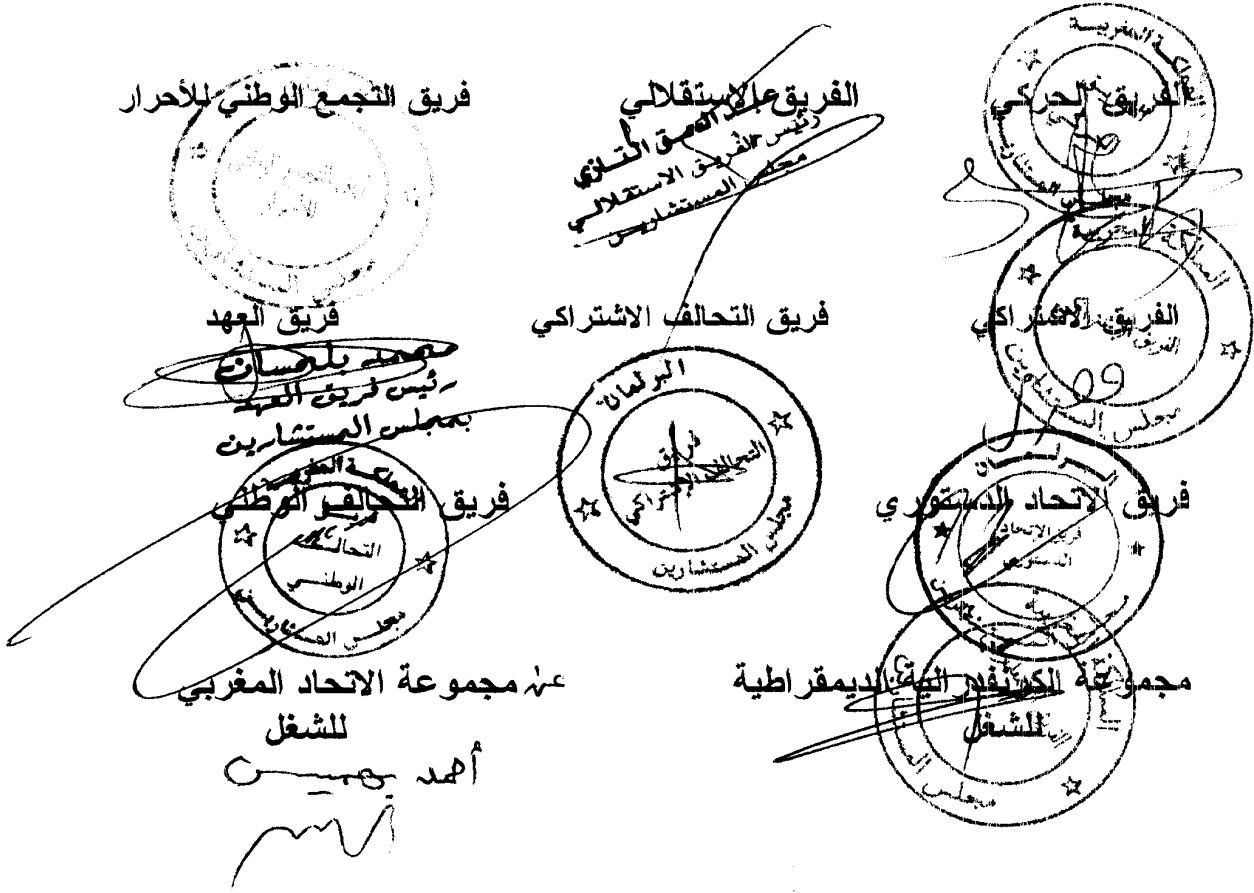 الفريق الحركي
الفريق الاستقلالي
عبد الحق التازي
رئيس الفريق الاستقلالي
مجلس المستشارين
فريق التجمع الوطني للأحرار
الفريق الاشتراكي
مجلس المستشارين
فريق التحالف الاشتراكي
البرلمان
فريق
التحالف الاشتراكي
مجلس المستشارين
فريق العهد
رئيس فريق العهد
بمجلس المستشارين
فريق الاتحاد الدستوري
البرلمان
فريق الاتحاد
الدستوري
فريق التحالف الوطني
المملكة المغربية
التحالف
الوطني
مجلس المستشارين
مجموعة الكونفدرالية الديمقراطية
للشغل
مجلس المستشارين
عن مجموعة الاتحاد المغربي
للشغل
أحمد